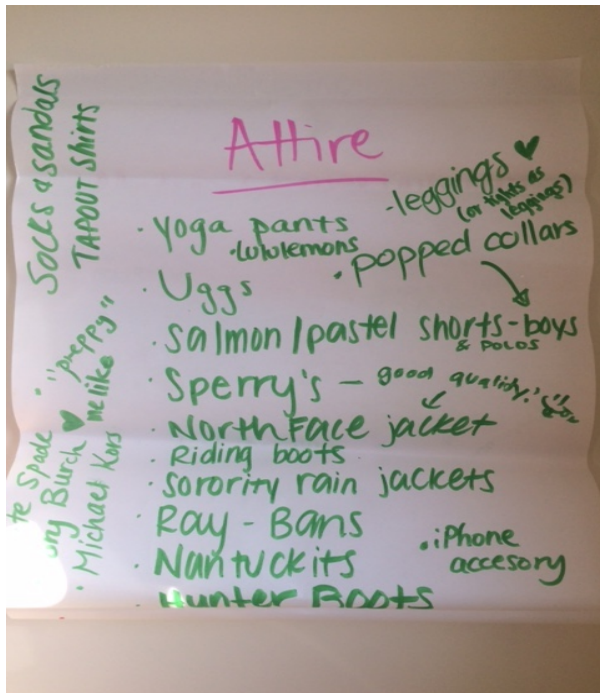 Attire
-leggings ♥
(or tights as
leggings)
· yoga pants
·Lululemons
· popped collars
· Uggs
· Salmon/pastel shorts-boys
& POLOS
· Sperry's - good quality!
· North Face jacket
· Riding boots
· Sorority rain jackets
· Ray-Bans
· Nantuckits
· iPhone
accesory
Hunter Boots
Socks & sandals
TAPOUT Shirts
· "preppy"
me like
Spade
Burch ♥
· Michael Kors